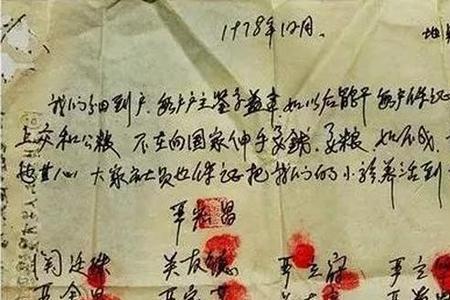 1978年12月. 地
我们分田到户,每户户主签字盖章,如以后能干,每户保证
上交和公粮,不在向国家伸手要钱,要粮,如不成,
也甘心,大家社员也保证把我们的小孩养活到
严宏昌
关廷珠 关友德 严立符
严金昌 严家芝